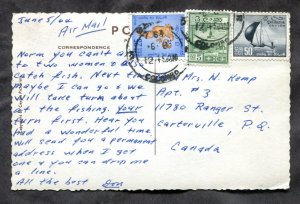 June 5/64
Air Mail
P C
CORRESPONDENCE
Norm you can't
to two women
catch fish. Next
Maybe I can go & we
will take turn about
at the fishing. Your
turn first. Hear you
had a wonderful time
will send you a permanent
address when I get
one & you can drop me
a line.
All the best Don
Mrs. N. Kemp
Apt. # 3
11780 Ranger St.
Carterville, P.Q.
Canada
50